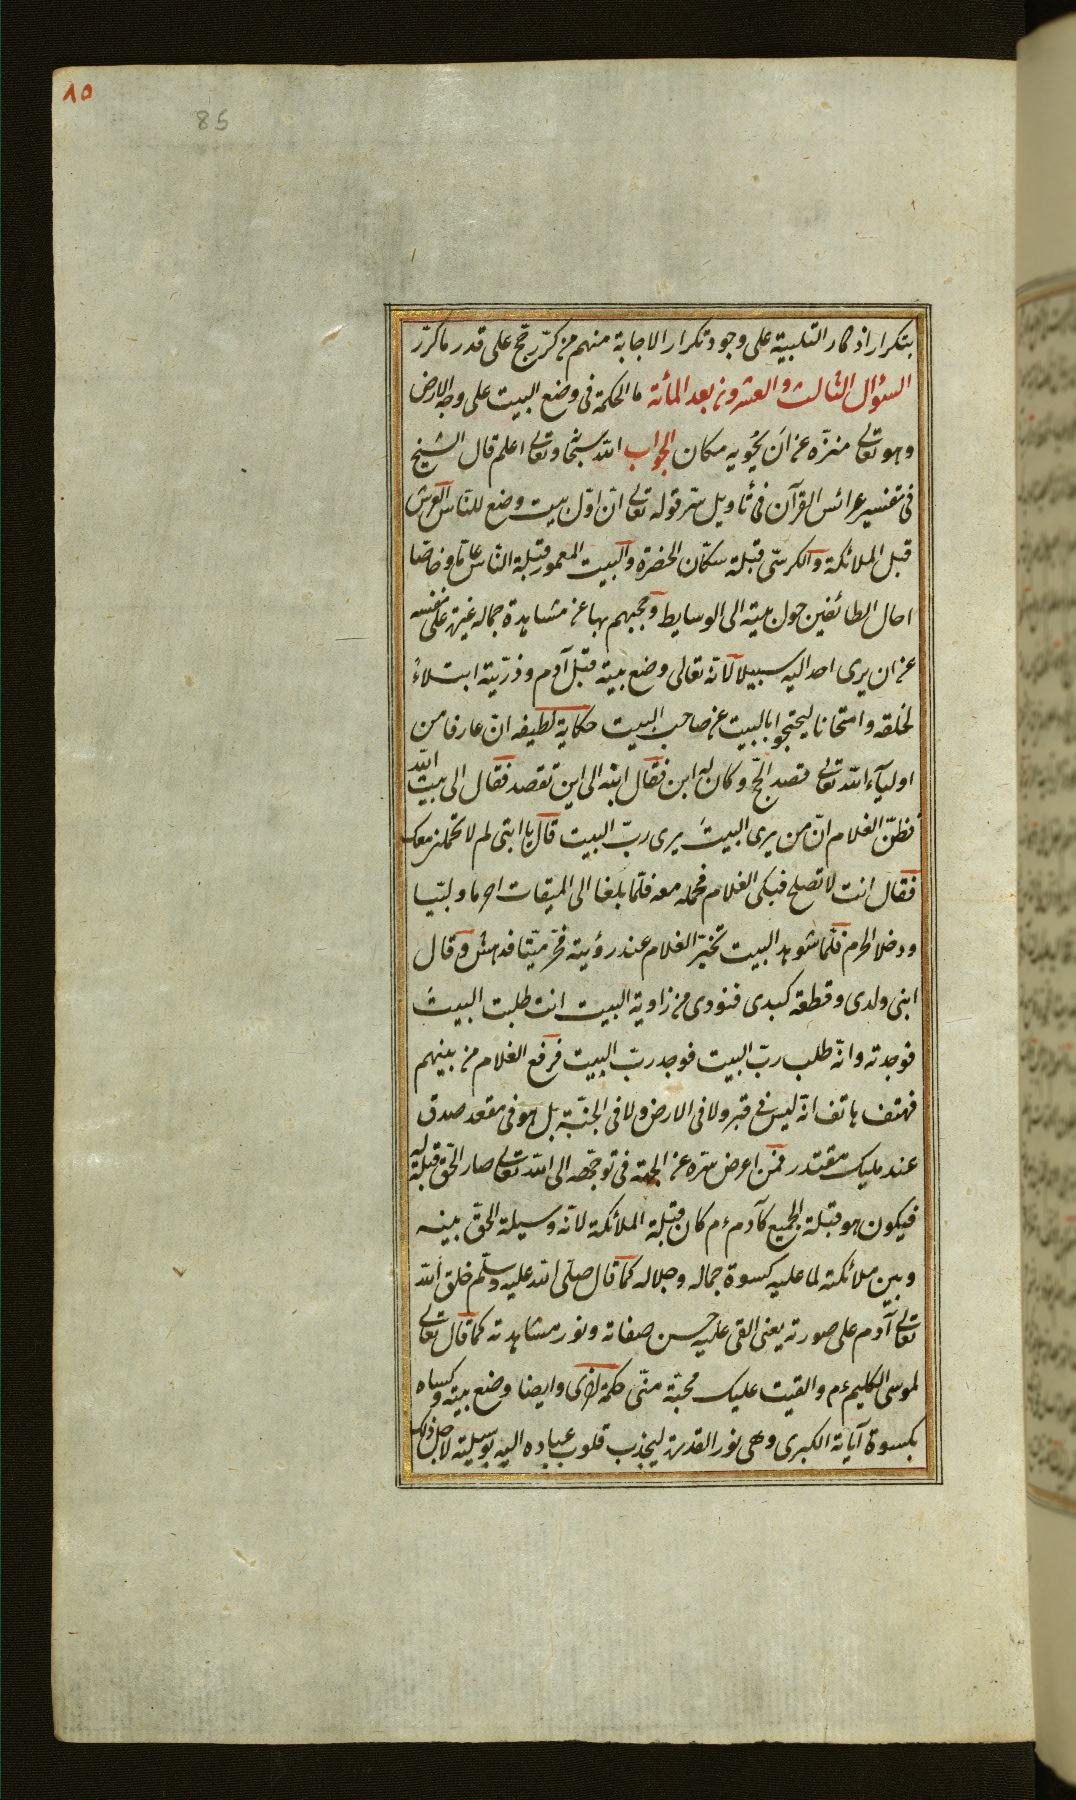 ٨٥
85
بتكرار اذكار التلبية على وجود تكرار الاجابة منهم من كرّر حجّ على قدر ما كرّر
السؤال الثالث والعشرون بعد المأئة ما الحكمة فى وضع البيت على وجه الارض
وهو تعالى منزّه عن ان يحويه مكان الجواب الله سبحانه وتعالى اعلم قال الشيخ
فى تفسير عرائس القرآن فى تأويل سرّ قوله تعالى انّ اوّل بيت وضع للنّاس العرش
قبل الملائكة والكرسىّ قبلة سكّان الحضرة والبيت المعمور قبلة النّاس عامّا وخاصّا
احال الطائفين حول بيته الى الوسايط وحجبهم بها عن مشاهدة جماله غيرة على نفسه
عن ان يرى احد اليه سبيلا لانّه تعالى وضع بيته قبل آدم وذرّيته ابتلاءً
لخلقه وامتحانا ليحتجبوا بالبيت عن صاحب البيت حكاية لطيفه انّ عارفا من
اولياء الله تعالى قصد الحجّ وكان له ابن فقال ابنه الى اين تقصد فقال الى بيت الله
فظنّ الغلام انّ من يرى البيتَ يرى ربّ البيت قال يا ابتى لم لا تحملنى معك
فقال انت لا تصلح فبكى الغلام فحمله معه فلمّا بلغا الى الميقات احرما ولبّيا
ودخلا الحرم فلمّا شوهد البيت تحيّر الغلام عند رؤيته فخرّ ميّتا فدهش وقال
ابنى ولدى وقطعة كبدى فنودى من زاوية البيت انت طلبت البيتَ
فوجدته وانّه طلب ربّ البيت فوجد ربّ البيت فرفع الغلام من بينهم
فهتف هاتف انّه ليس فى قبر ولا فى الارض ولا فى الجنّة بل هو فى مقعد صدق
عند مليك مقتدر فمن اعرض سرّه عن الجهة فى توجّهه الى الله تعالى صار الحقّ قبلة له
فيكون هو قبلة الجميع كآدم ءم كان قبلة الملائكة لانّه وسيلة الحقّ بينه
وبين ملائكته لما عليه كسوة جماله وجلاله كما قال صلّى الله عليه وسلّم خلق الله
تعالى آدم على صورته يعنى القى عليه حسن صفاته ونور مشاهدته كما قال تعالى
لموسى الكليم ءم والقيت عليك محبّة منّى حكمة اخرى وايضا وضع بيته وكساه
بكسوة آياته الكبرى وهى نور القدس ليجذب قلوب عباده اليه بوسيلته لاجل ذلك